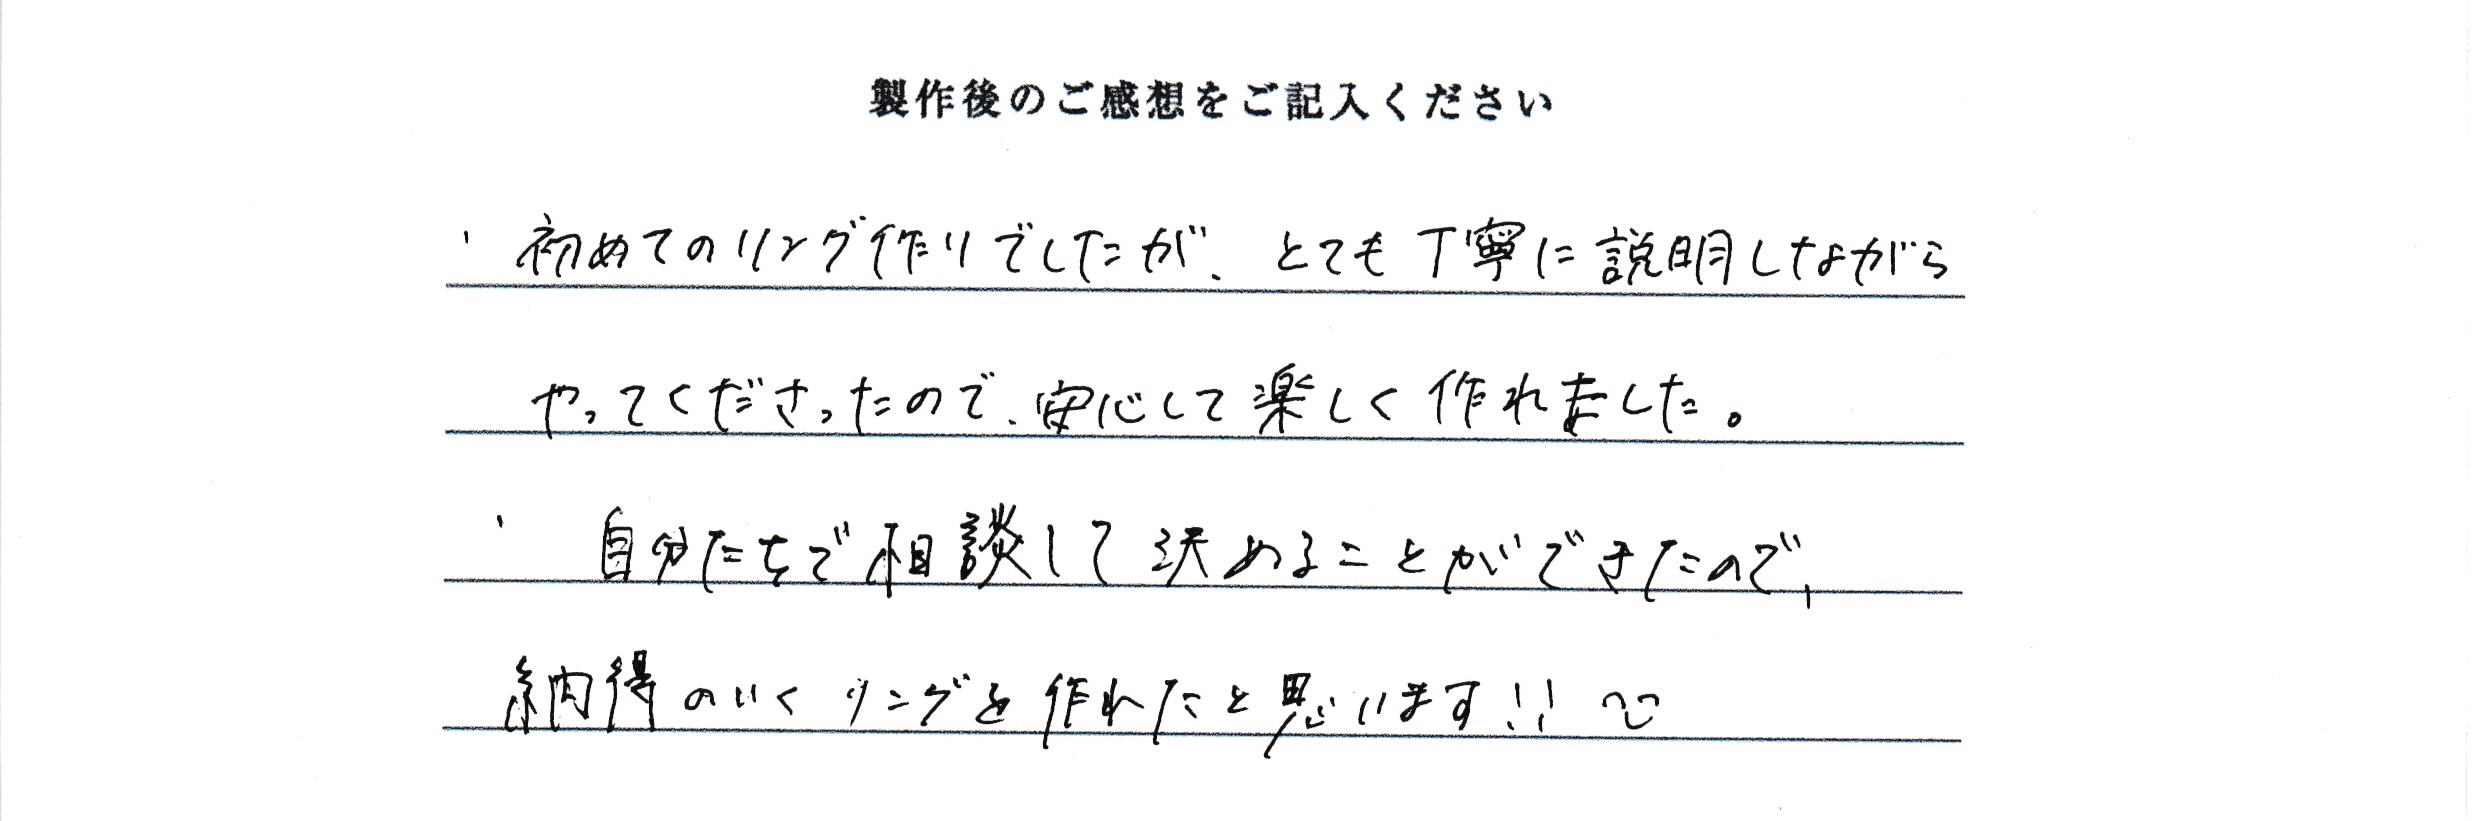 製作後のご感想をご記入ください
・初めてのリング作りでしたが、とても丁寧に説明しながら
やってくださったので、安心して楽しく作れました。
・自分たちで相談して決めることができたので、
納得のいくリングを作れたと思います!!